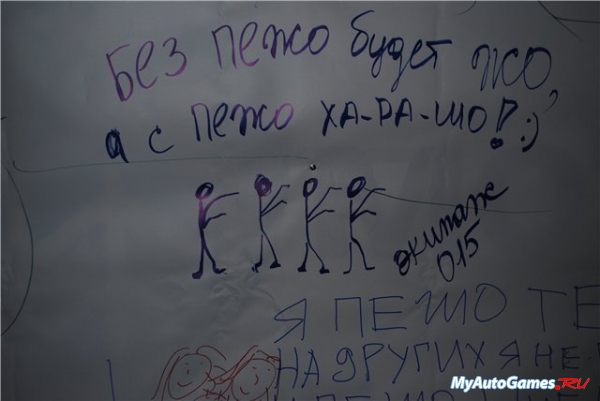 Без пежо будет жо,
а с пежо ХА-РА-ШО! :)
экипаж
015
Я ПЕЖО ТЕ
НА ДРУГИХ Я НЕ
MyAutoGames.RU